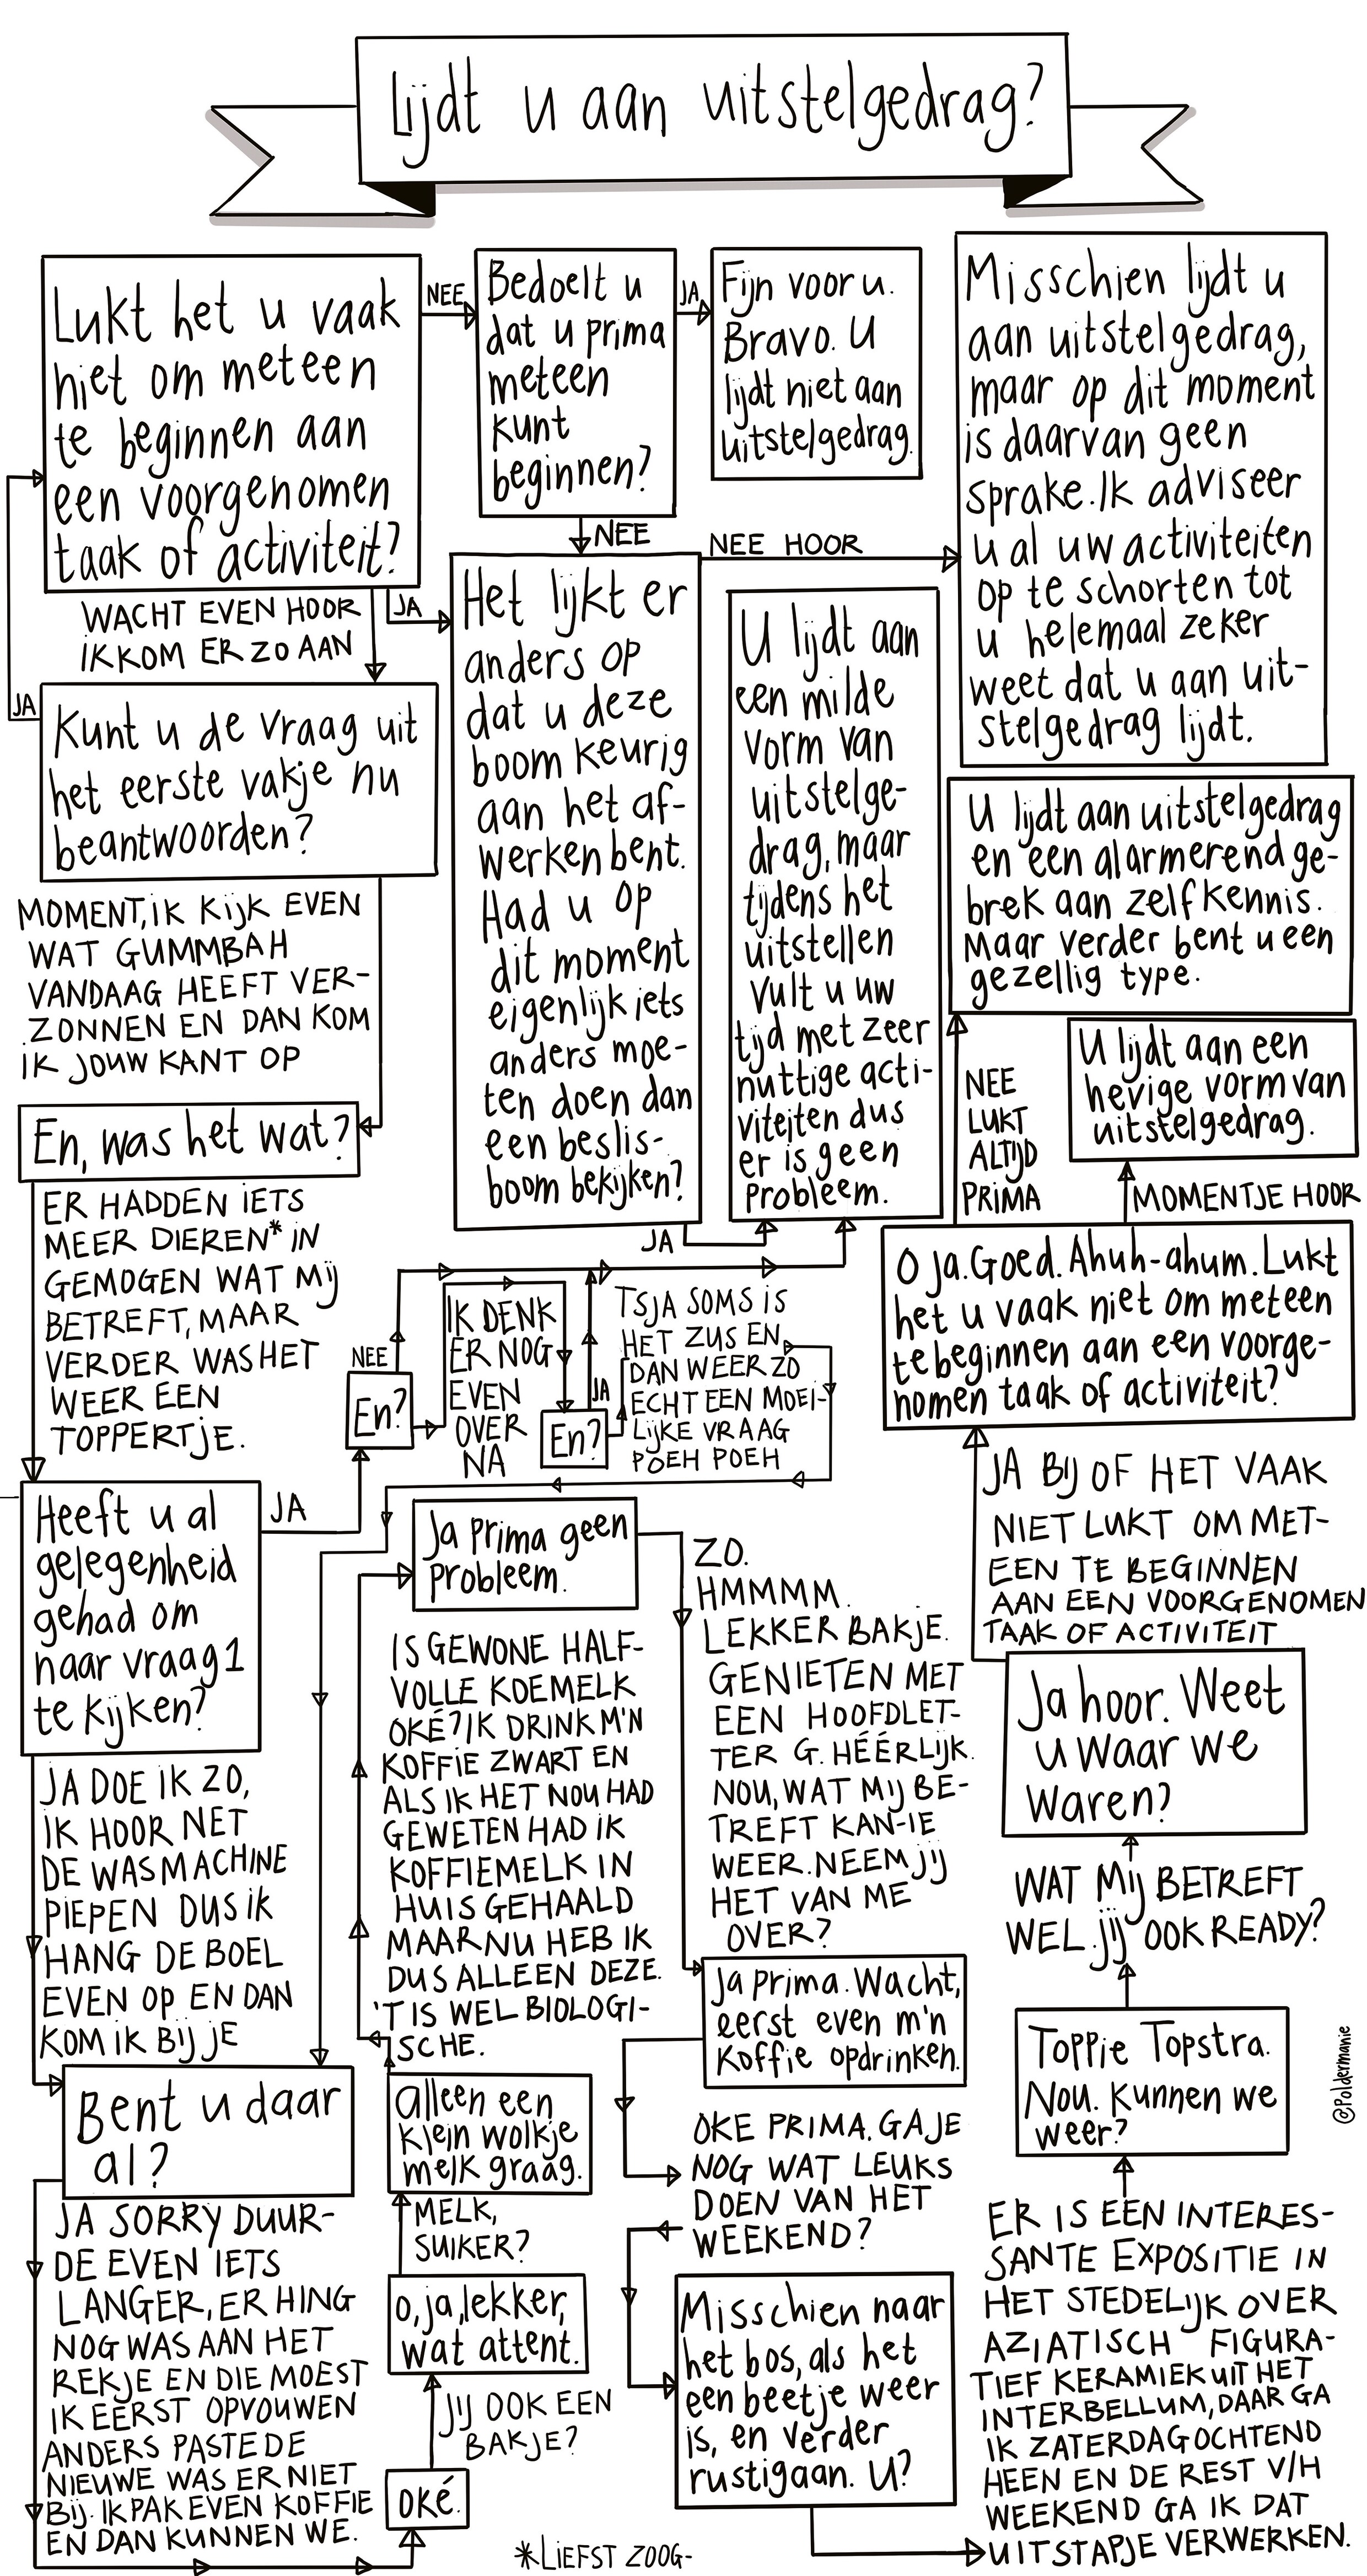 Lijdt u aan uitstelgedrag?
Lukt het u vaak
niet om meteen
te beginnen aan
een voorgenomen
taak of activiteit?
NEE
Bedoelt u
dat u prima
meteen
kunt
beginnen?
JA
Fijn voor u.
Bravo. U
lijdt niet aan
uitstelgedrag.
NEE
JA
Het lijkt er
anders op
dat u deze
boom keurig
aan het af-
werken bent.
Had u op
dit moment
eigenlijk iets
anders moe-
ten doen dan
een beslis-
boom bekijken?
NEE HOOR
Misschien lijdt u
aan uitstelgedrag,
maar op dit moment
is daarvan geen
sprake. Ik adviseer
u al uw activiteiten
op te schorten tot
u helemaal zeker
weet dat u aan uit-
stelgedrag lijdt.
JA
U lijdt aan
een milde
vorm van
uitstelge-
drag, maar
tijdens het
uitstellen
vult u uw
tijd met zeer
nuttige acti-
viteiten dus
er is geen
probleem.
WACHT EVEN HOOR
IK KOM ER ZO AAN
JA
Kunt u de vraag uit
het eerste vakje nu
beantwoorden?
MOMENT, IK KIJK EVEN
WAT GUMMBAH
VANDAAG HEEFT VER-
ZONNEN EN DAN KOM
IK JOUW KANT OP
En, was het wat?
ER HADDEN IETS
MEER DIEREN* IN
GEMOGEN WAT MIJ
BETREFT, MAAR
VERDER WAS HET
WEER EEN
TOPPERTJE.
Heeft u al
gelegenheid
gehad om
naar vraag 1
te kijken?
JA
En?
NEE
IK DENK
ER NOG
EVEN
OVER
NA
En?
JA
TSJA SOMS IS
HET ZUS EN
DAN WEER ZO
ECHT EEN MOEI-
LIJKE VRAAG
POEH POEH
JA DOE IK ZO,
IK HOOR NET
DE WASMACHINE
PIEPEN DUS IK
HANG DE BOEL
EVEN OP EN DAN
KOM IK BIJ JE
Bent u daar
al?
JA SORRY DUUR-
DE EVEN IETS
LANGER, ER HING
NOG WAS AAN HET
REKJE EN DIE MOEST
IK EERST OPVOUWEN
ANDERS PASTE DE
NIEUWE WAS ER NIET
BIJ. IK PAK EVEN KOFFIE
EN DAN KUNNEN WE.
oké.
JIJ OOK EEN
BAKJE?
o, ja, lekker,
wat attent.
MELK,
SUIKER?
Alleen een
klein wolkje
melk graag.
IS GEWONE HALF-
VOLLE KOEMELK
OKÉ? IK DRINK M'N
KOFFIE ZWART EN
ALS IK HET NOU HAD
GEWETEN HAD IK
KOFFIEMELK IN
HUIS GEHAALD
MAAR NU HEB IK
DUS ALLEEN DEZE.
'T IS WEL BIOLOGI-
SCHE.
Ja prima geen
probleem.
ZO.
HMMMM.
LEKKER BAKJE.
GENIETEN MET
EEN HOOFDLET-
TER G. HÉÉRLIJK.
NOU, WAT MIJ BE-
TREFT KAN-IE
WEER. NEEM JIJ
HET VAN ME
OVER?
Ja prima. Wacht,
eerst even m'n
koffie opdrinken.
OKE PRIMA. GA JE
NOG WAT LEUKS
DOEN VAN HET
WEEKEND?
Misschien naar
het bos, als het
een beetje weer
is, en verder
rustigaan. U?
ER IS EEN INTERES-
SANTE EXPOSITIE IN
HET STEDELIJK OVER
AZIATISCH FIGURA-
TIEF KERAMIEK UIT HET
INTERBELLUM, DAAR GA
IK ZATERDAGOCHTEND
HEEN EN DE REST V/H
WEEKEND GA IK DAT
UITSTAPJE VERWERKEN.
Toppie Topstra.
Nou. Kunnen we
weer?
WAT MIJ BETREFT
WEL. JIJ OOK READY?
Ja hoor. Weet
u waar we
waren?
JA BIJ OF HET VAAK
NIET LUKT OM MET-
EEN TE BEGINNEN
AAN EEN VOORGENOMEN
TAAK OF ACTIVITEIT
O ja. Goed. Ahuh-ahum. Lukt
het u vaak niet om meteen
te beginnen aan een voorge-
nomen taak of activiteit?
MOMENTJE HOOR
U lijdt aan een
hevige vorm van
uitstelgedrag.
NEE
LUKT
ALTIJD
PRIMA
U lijdt aan uitstelgedrag
en een alarmerend ge-
brek aan zelfkennis.
Maar verder bent u een
gezellig type.
*LIEFST ZOOG-
@Poldermanie